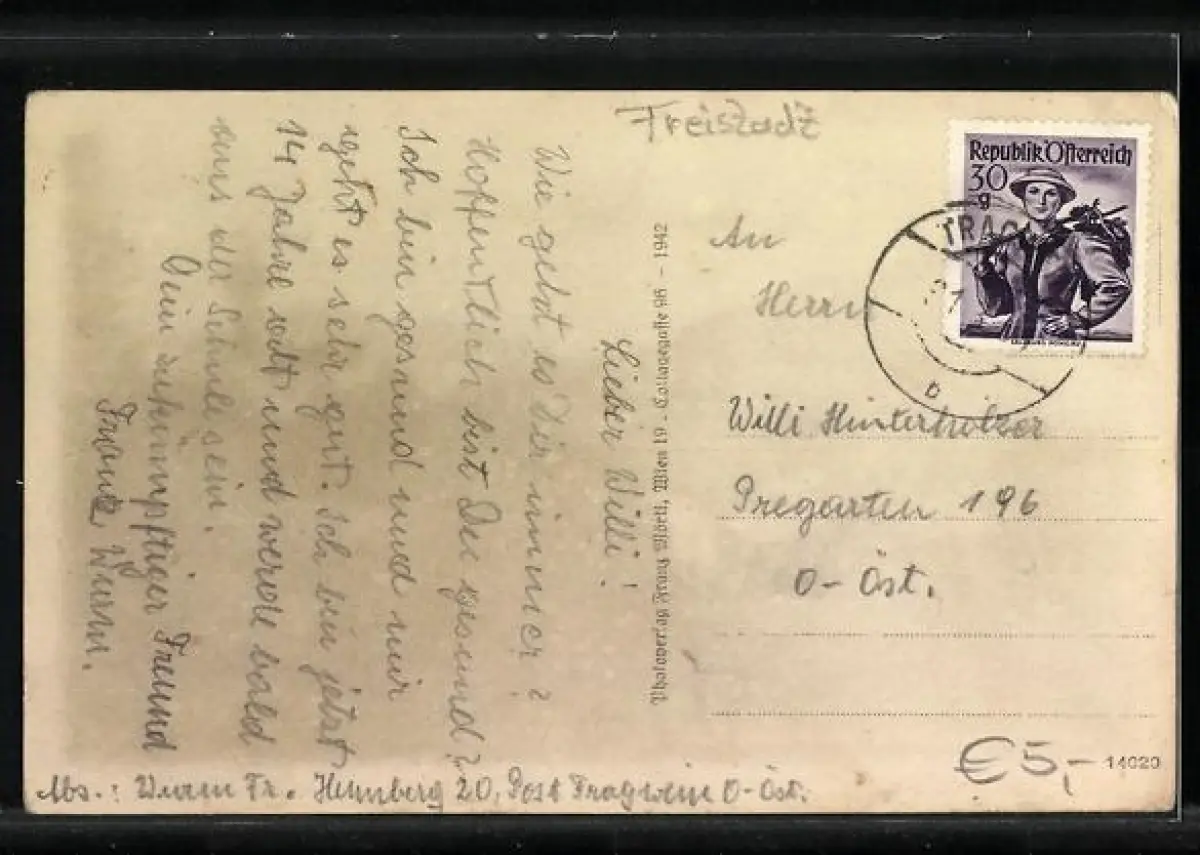 Freistadt
Republik Österreich
30
g
TRAG
An
Herrn
Willi Hinterholzer
Pregarten 196
O-Öst.
b
Lieber Willi!
Wie geht es Dir immer?
Hoffentlich bist Du gesund?
Ich bin gesund und mir
geht es sehr gut. Ich bin jetzt
14 Jahre alt und werde bald
aus der Schule sein.
Dein zukünpftiger Freund
Franz Wurm.
Photoverlag Franz Wien 19 - 98 - 1942
Abs.: Wurm Fr. Hemberg 20, Post Tragwein O-Öst.
€5,-
14020